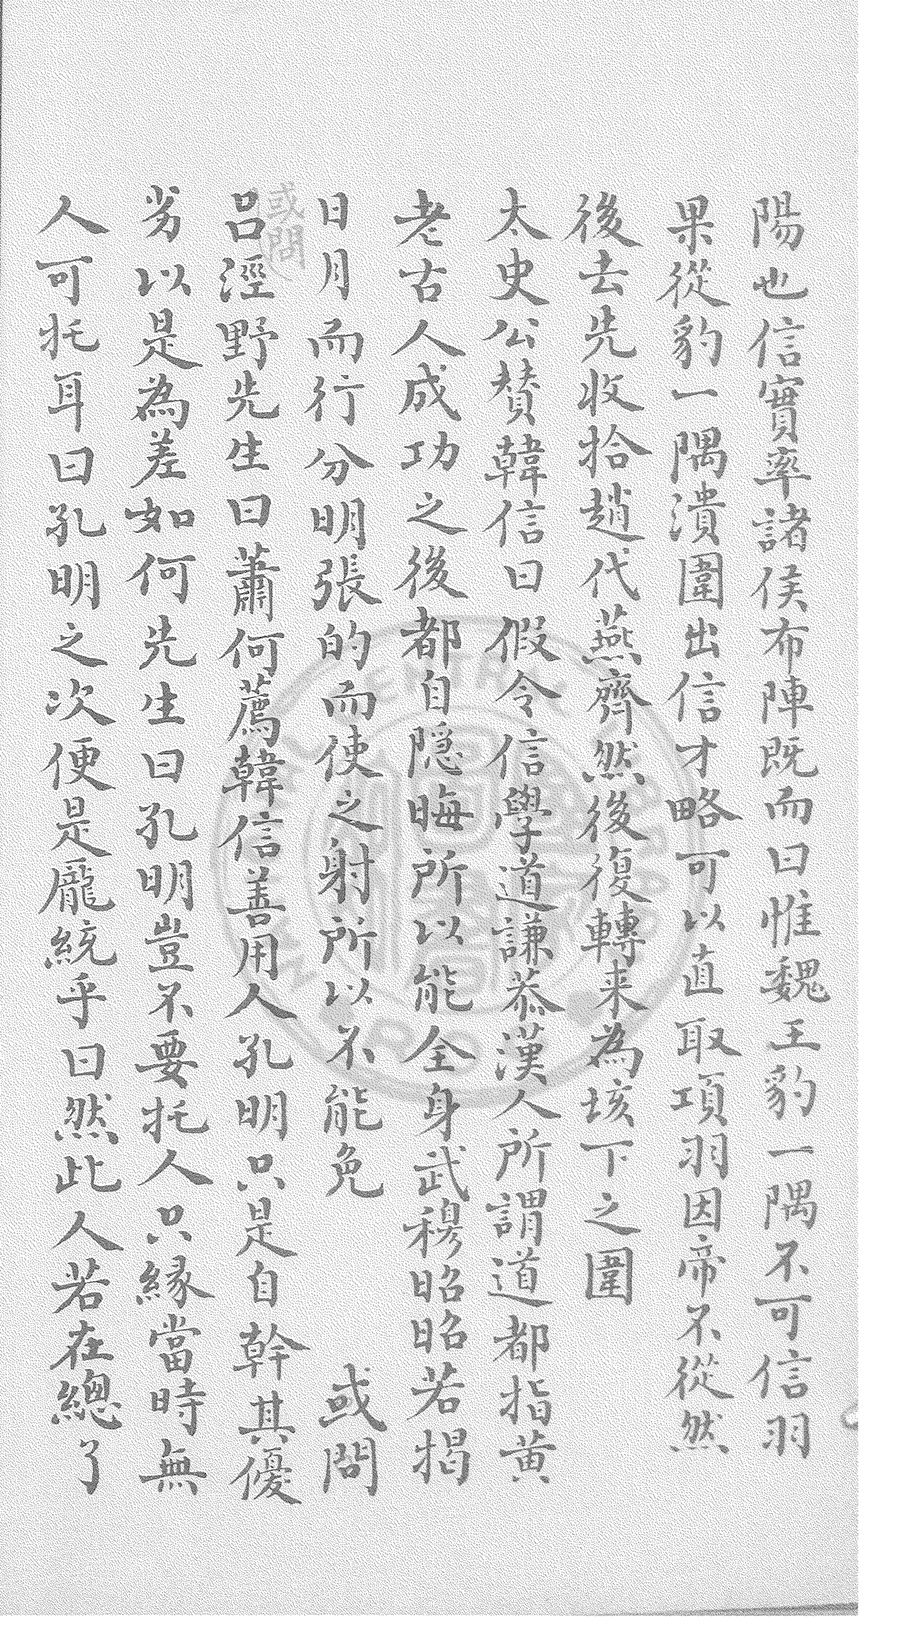 陽也信實率諸侯布陣既而曰惟魏王豹一隅不可信羽
果從豹一隅潰圍出信才略可以直取項羽因帝不從然
後去先收拾趙代燕齊然後復轉来為垓下之圍
太史公賛韓信曰假令信學道謙恭漢人所謂道都指黄
老古人成功之後都自隠晦所以能全身武穆昭昭若揭
日月而行分明張的而使之射所以不能免　或問
或問
呂涇野先生曰蕭何薦韓信善用人孔明只是自幹其優
劣以是為差如何先生曰孔明豈不要托人只緣當時無
人可托耳曰孔明之次便是龐統乎曰然此人若在總了